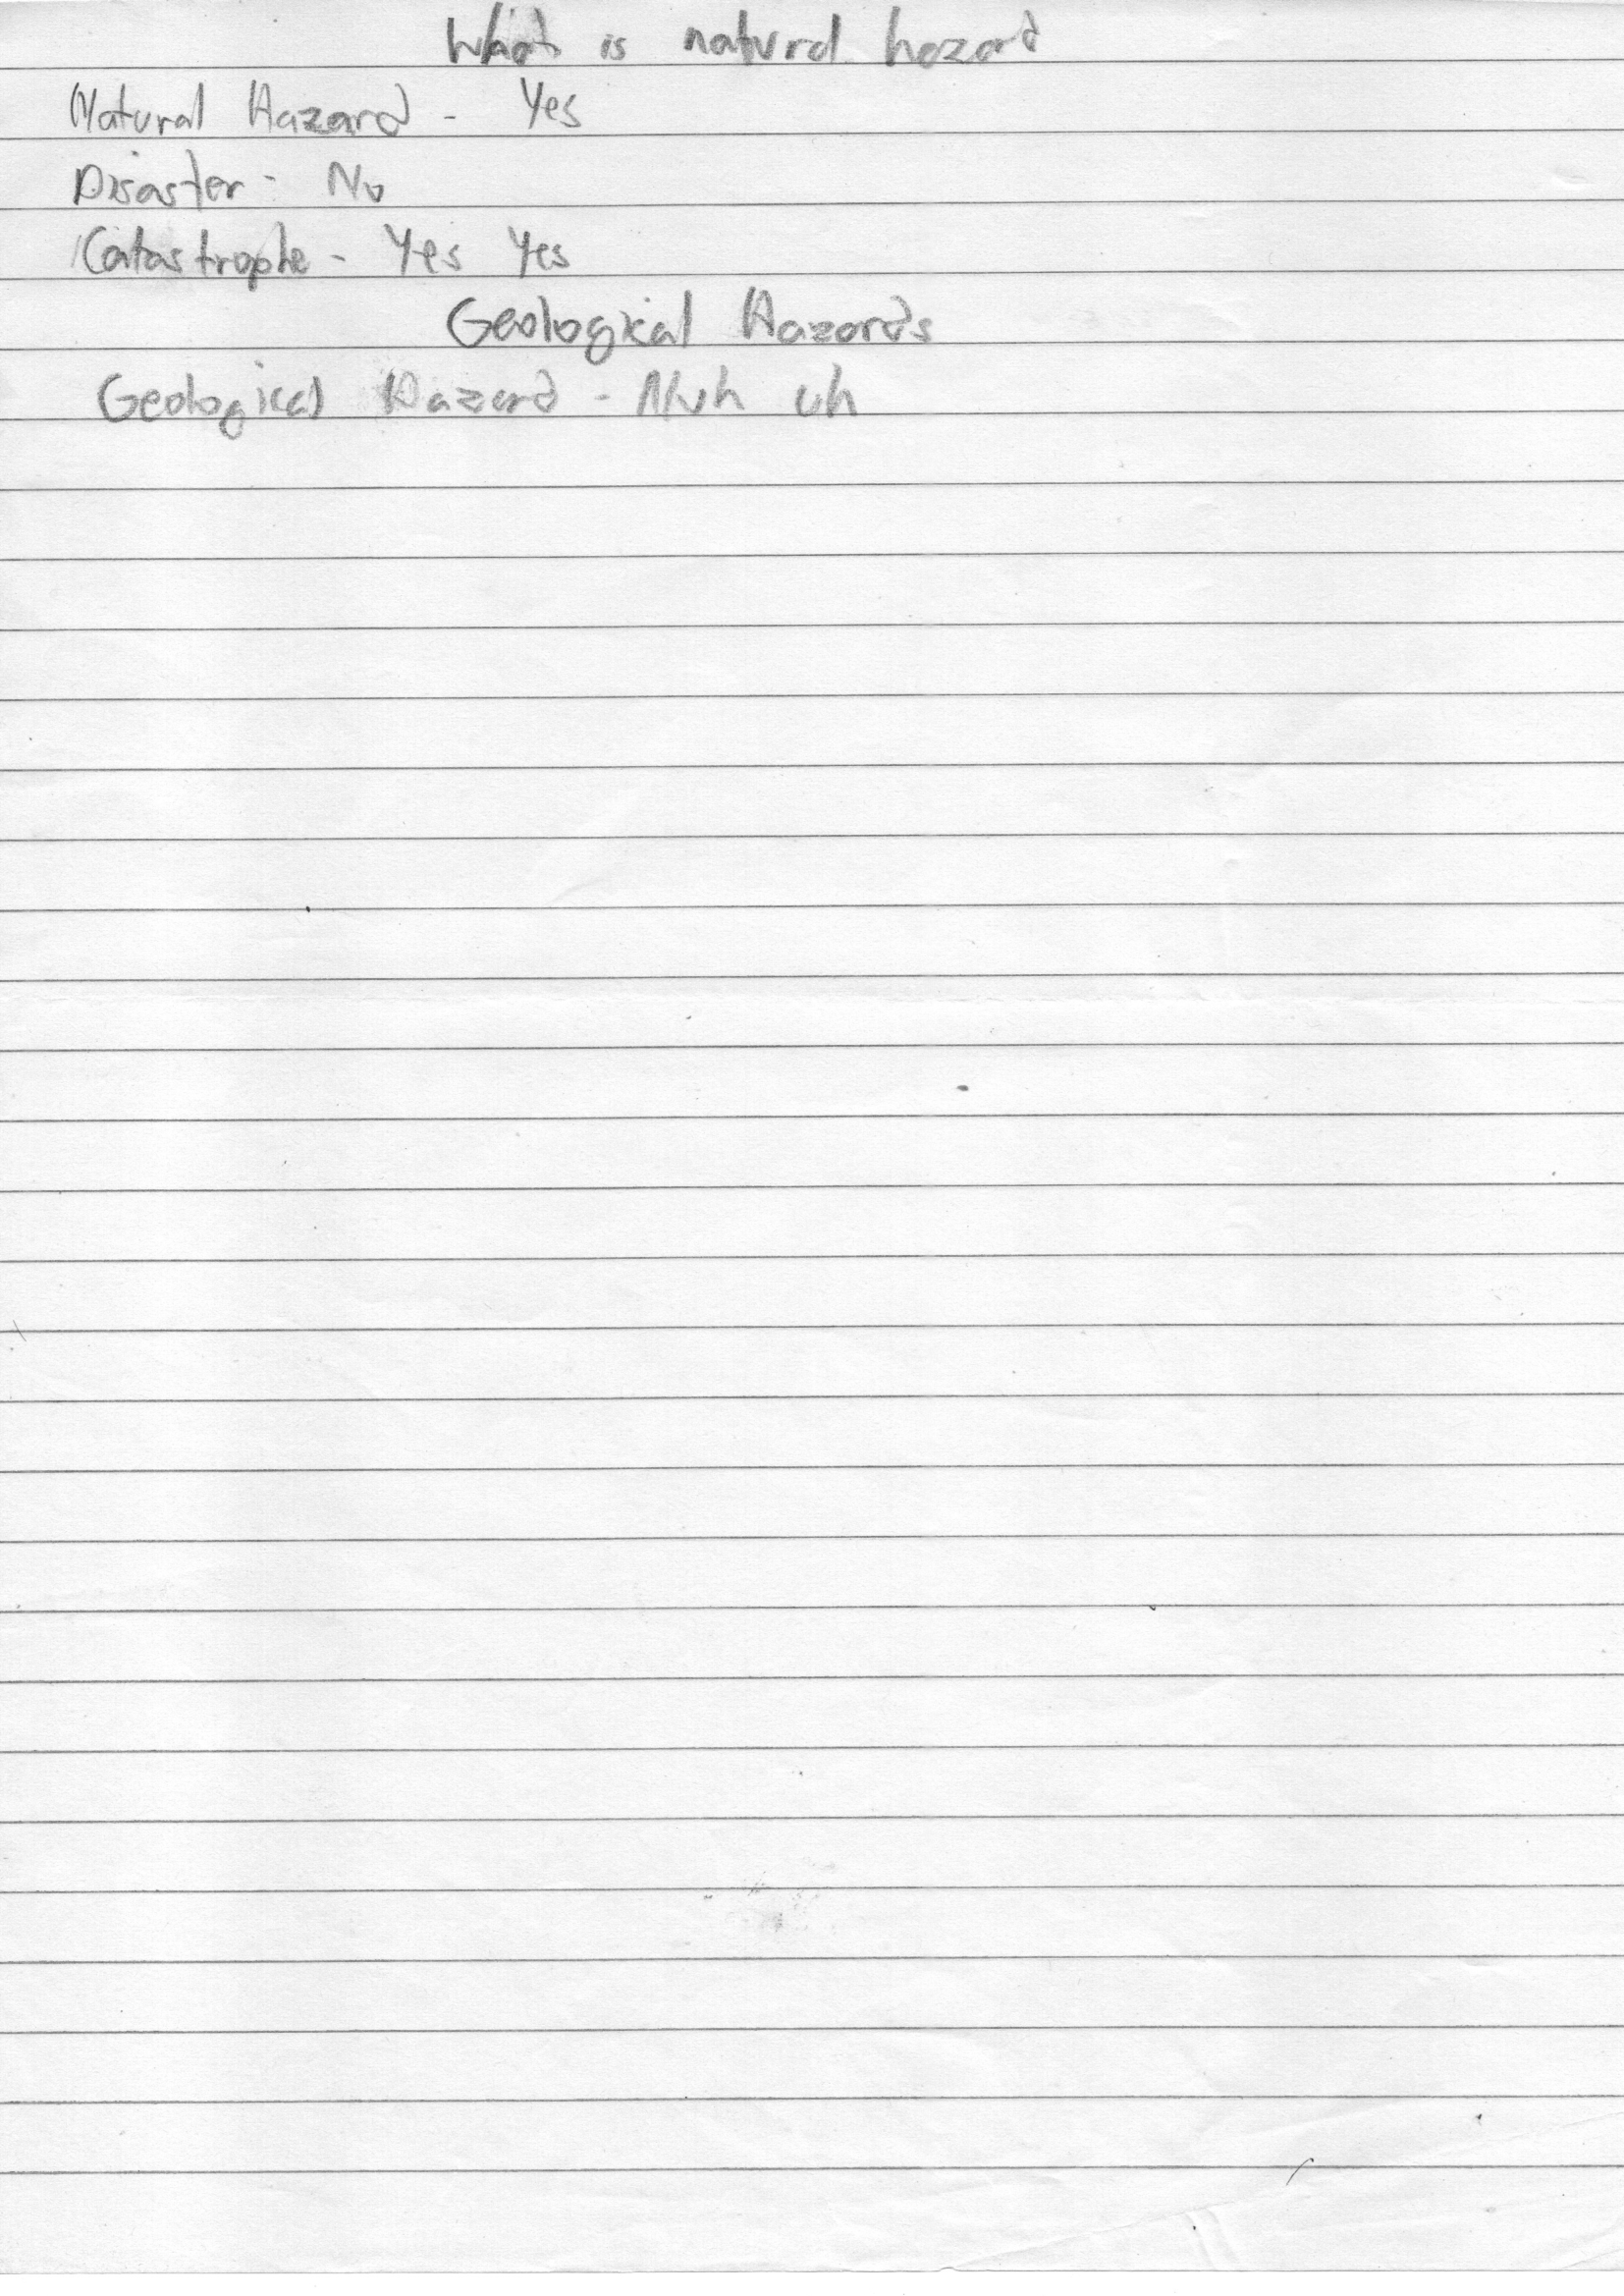 What is natural hazard
Natural Hazard - Yes
Disaster - No
Catastrophe - Yes Yes
Geological Hazards
Geological Hazard - Nuh uh